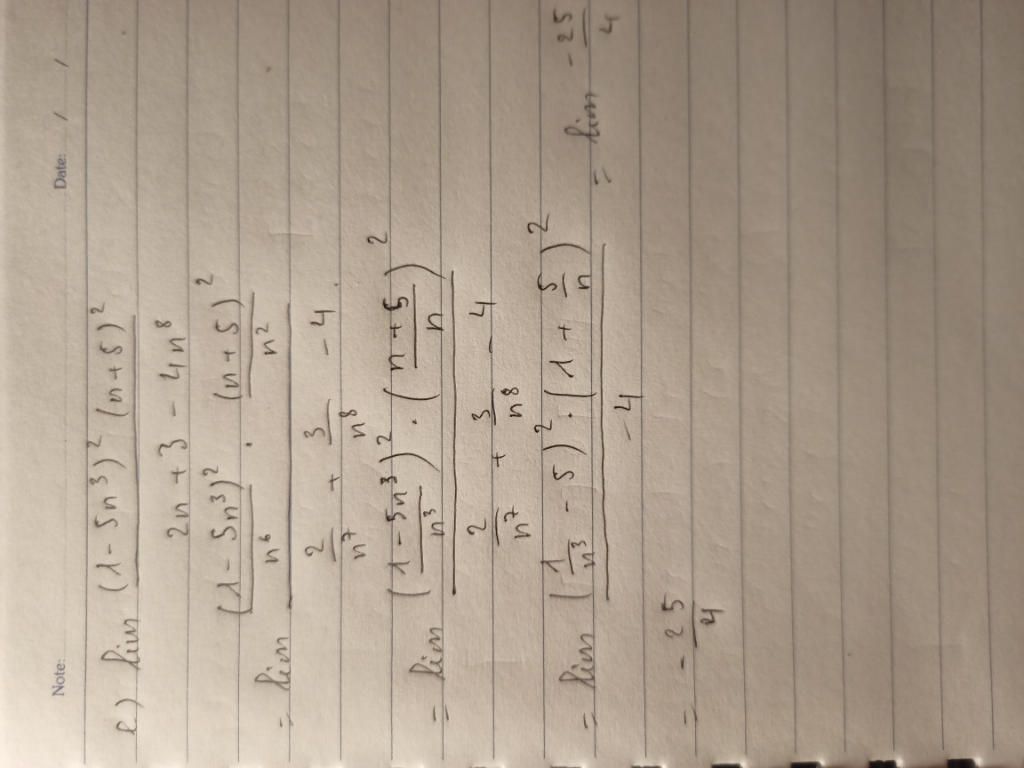 Note: Date: / /
e) lim (1-5n³)² (n+5)²
2n + 3 - 4n⁸
(1-5n³)² . (n+5)²
n⁶ n²
= lim
2/n⁷ + 3/n⁸ - 4
= lim ((1-5n³)/n³)² . ((n+5)/n)²
2/n⁷ + 3/n⁸ - 4
= lim (1/n³ - 5)² . (1 + 5/n)² = lim -25/4
-4
= -25/4